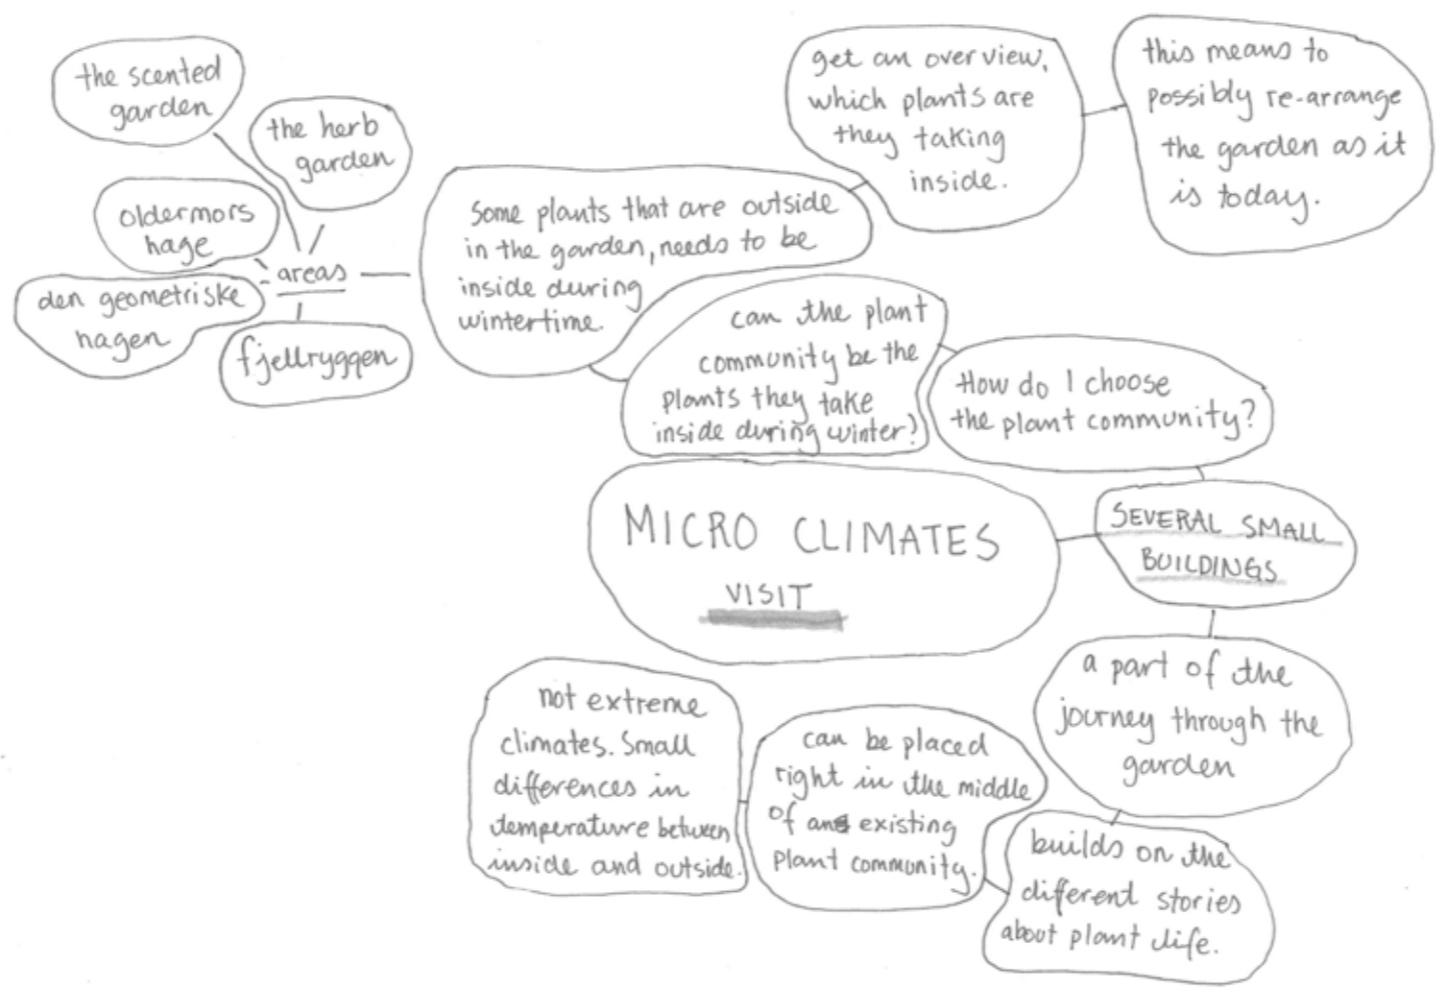 the scented
garden
the herb
garden
oldermors
hage
den geometriske
hagen
fjellryggen
areas
Some plants that are outside
in the garden, needs to be
inside during
wintertime.
get an overview,
which plants are
they taking
inside.
this means to
possibly re-arrange
the garden as it
is today.
can the plant
community be the
plants they take
inside during winter?
How do I choose
the plant community?
MICRO CLIMATES
VISIT
SEVERAL SMALL
BUILDINGS
a part of the
journey through the
garden
builds on the
different stories
about plant life.
can be placed
right in the middle
of an existing
plant community.
not extreme
climates. Small
differences in
temperature between
inside and outside.